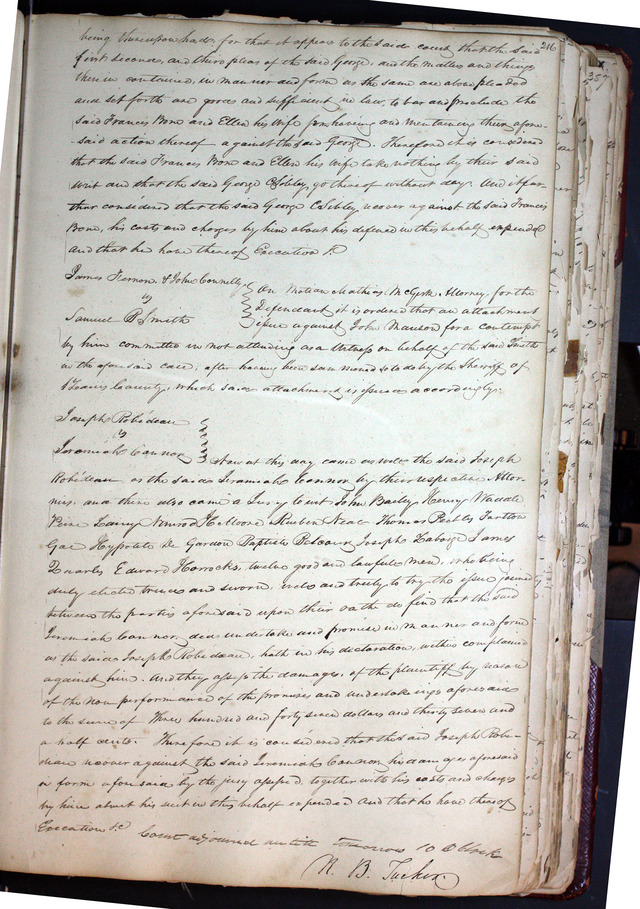 being thereupon had, for that it appears to the said court that the said 216
first second, and third pleas of the said George, and the matters and things
therein contained, in manner and form as the same are above pleaded
and set forth are good and sufficient in law, to bar and preclude the
said Francis Bone and Ellen his Wife from having and mentaining their afore-
said action thereof against the said George. Therefore it is considered
that the said Francis Bone and Ellen his Wife take nothing by their said
writ and that the said George C Sibley, go thereof without day. And it fur
ther considered that the said George C Sibley recover against the said Francis
Bone, his costs and charges by him about his defence in this behalf expended
and that he have thereof Execution &c
James Vernon & John Connelly
vs
Samuel R Smith
On Motion Mathias McGirk Attorney for the
Defendant it is ordered that an attachment
issue against John for a contempt
by him committed in not attending as a Witness on behalf of the said Smith
in the aforesaid case, after having been summoned so to do by the Sheriff of
St Louis County, which said attachment is issued accordingly.
Joseph Robideau
vs
Jeremiah Connor
Now at this day came as well the said Joseph
Robideau as the said Jeremiah Connor by their respective Attor-
nies, and there also came a Jury to wit John Bailey Henry Waddle
Nimrod Reuben Neal Thomas Peebles Tarlton
Hypolite De Baptiste Joseph James
Quarles Edward Horrocks, twelve good and lawful men, who being
duly elected tried and sworn, well and truly to try the issue joined
between the parties aforesaid upon their oaths do find that the said
Jeremiah Connor, did undertake and promise in manner and form
as the said Joseph Robideau, hath in his declaration, within complained
against him. And they assess the damages, of the plaintiff by reason
of the non performance of the promises and undertakings aforesaid
to the sum of three hundred and forty seven dollars and thirty seven and
a half cents. Therefore it is considered that the said Joseph Robi-
deau recover against the said Jeremiah Connor, his damages aforesaid
in form aforesaid by the jury assessed, together with his costs and charges
by him about his suit in this behalf expended and that he have thereof
Execution &c
Court adjourned untill tomorrow 10 O Clock
N. B. Tucker.